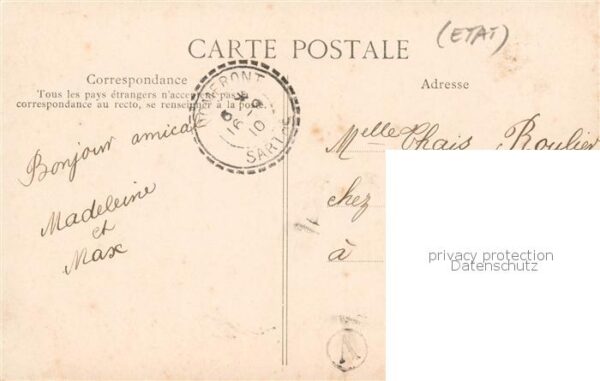 (ETAT)
CARTE POSTALE
Correspondance
Tous les pays étrangers n'acceptent pas la
correspondance au recto, se renseigner à la poste.
Adresse
SARTHE
16 - 9
10
Bonjour amical
Madeleine
et
Max
Melle Thais Roulier
chez
à
privacy protection
Datenschutz
A